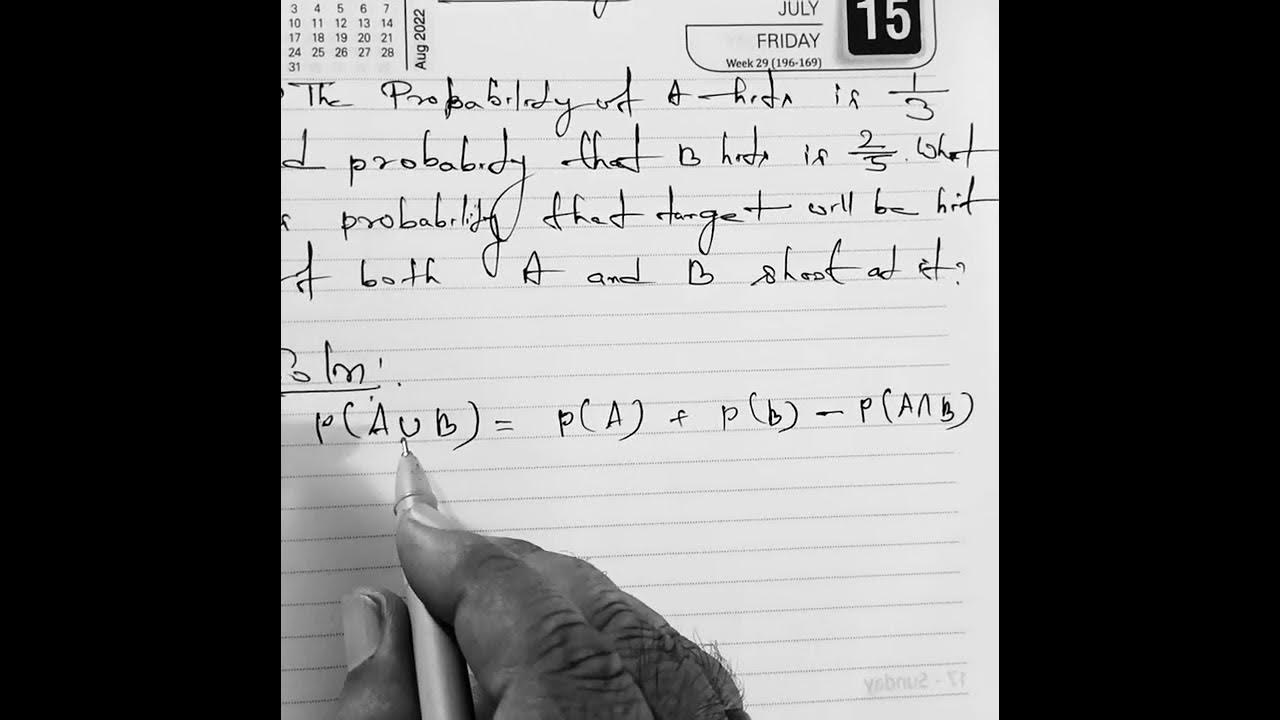 3 4 5 6 7
10 11 12 13 14
17 18 19 20 21
24 25 26 27 28
31
Aug 2022
JULY
15
FRIDAY
Week 29 (196-169)
The Probability of A hits is 1/3
d probability that B hits is 2/5. What
probability that target will be hit
if both A and B shoot at it?
Soln:
P(A∪B) = P(A) + P(B) - P(A∩B)
17 - Sunday